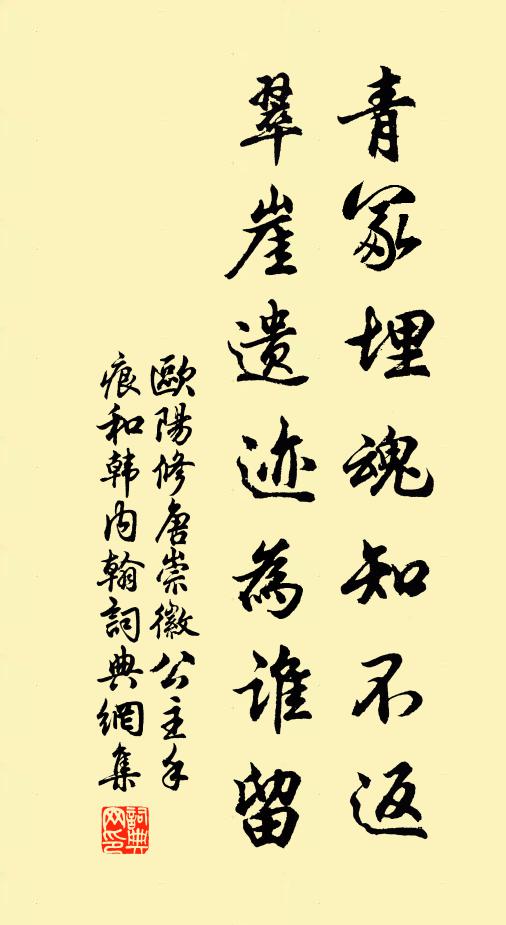 青冢埋魂知不返
翠崖遗迹為誰留
歐陽修唐崇徽公主手
痕和韩内翰詞典網集
詞典网印